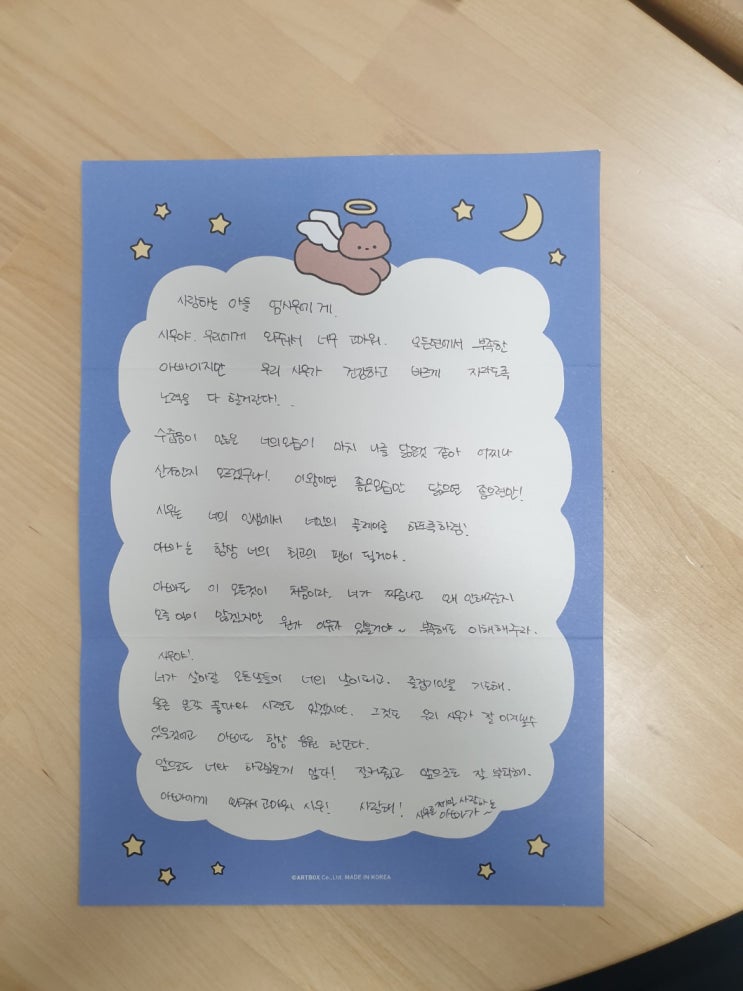 사랑하는 아들 엄시우에게.
시우야. 우리에게 와줘서 너무 고마워. 모든면에서 부족한
아빠이지만 우리 시우가 건강하고 바르게 자라도록
노력을 다 할거란다!.
수줍음이 많은 너의모습이 마치 나를 닮은것 같아 어찌나
신기한지 모르겠구나! 이왕이면 좋은모습만 닮으면 좋으련만!
시우는 너의 인생에서 너만의 플레이를 하도록하렴!
아빠는 항상 너의 최고의 팬이 될거야.
아빠도 이 모든것이 처음이라. 너가 짜증나고 왜 안해주는지
모를 일이 많겠지만 뭔가 이유가 있을거야~ 부족해도 이해해주라.
시우야!
너가 살아갈 모든날들이 너의 날이되고. 즐겁기만을 기도해.
물론 온갖 풍파와 시련도 있겠지만. 그것도 우리 시우가 잘 이겨낼수
있을것이고 아빠도 항상 응원 한단다.
앞으로도 너와 하고싶은게 많다! 잘커줬고 앞으로도 잘 부탁해.
아빠에게 와줘서 고마워 시우! 사랑해! 시우를 제일 사랑하는 아빠가~
©ARTBOX Co., Ltd. MADE IN KOREA